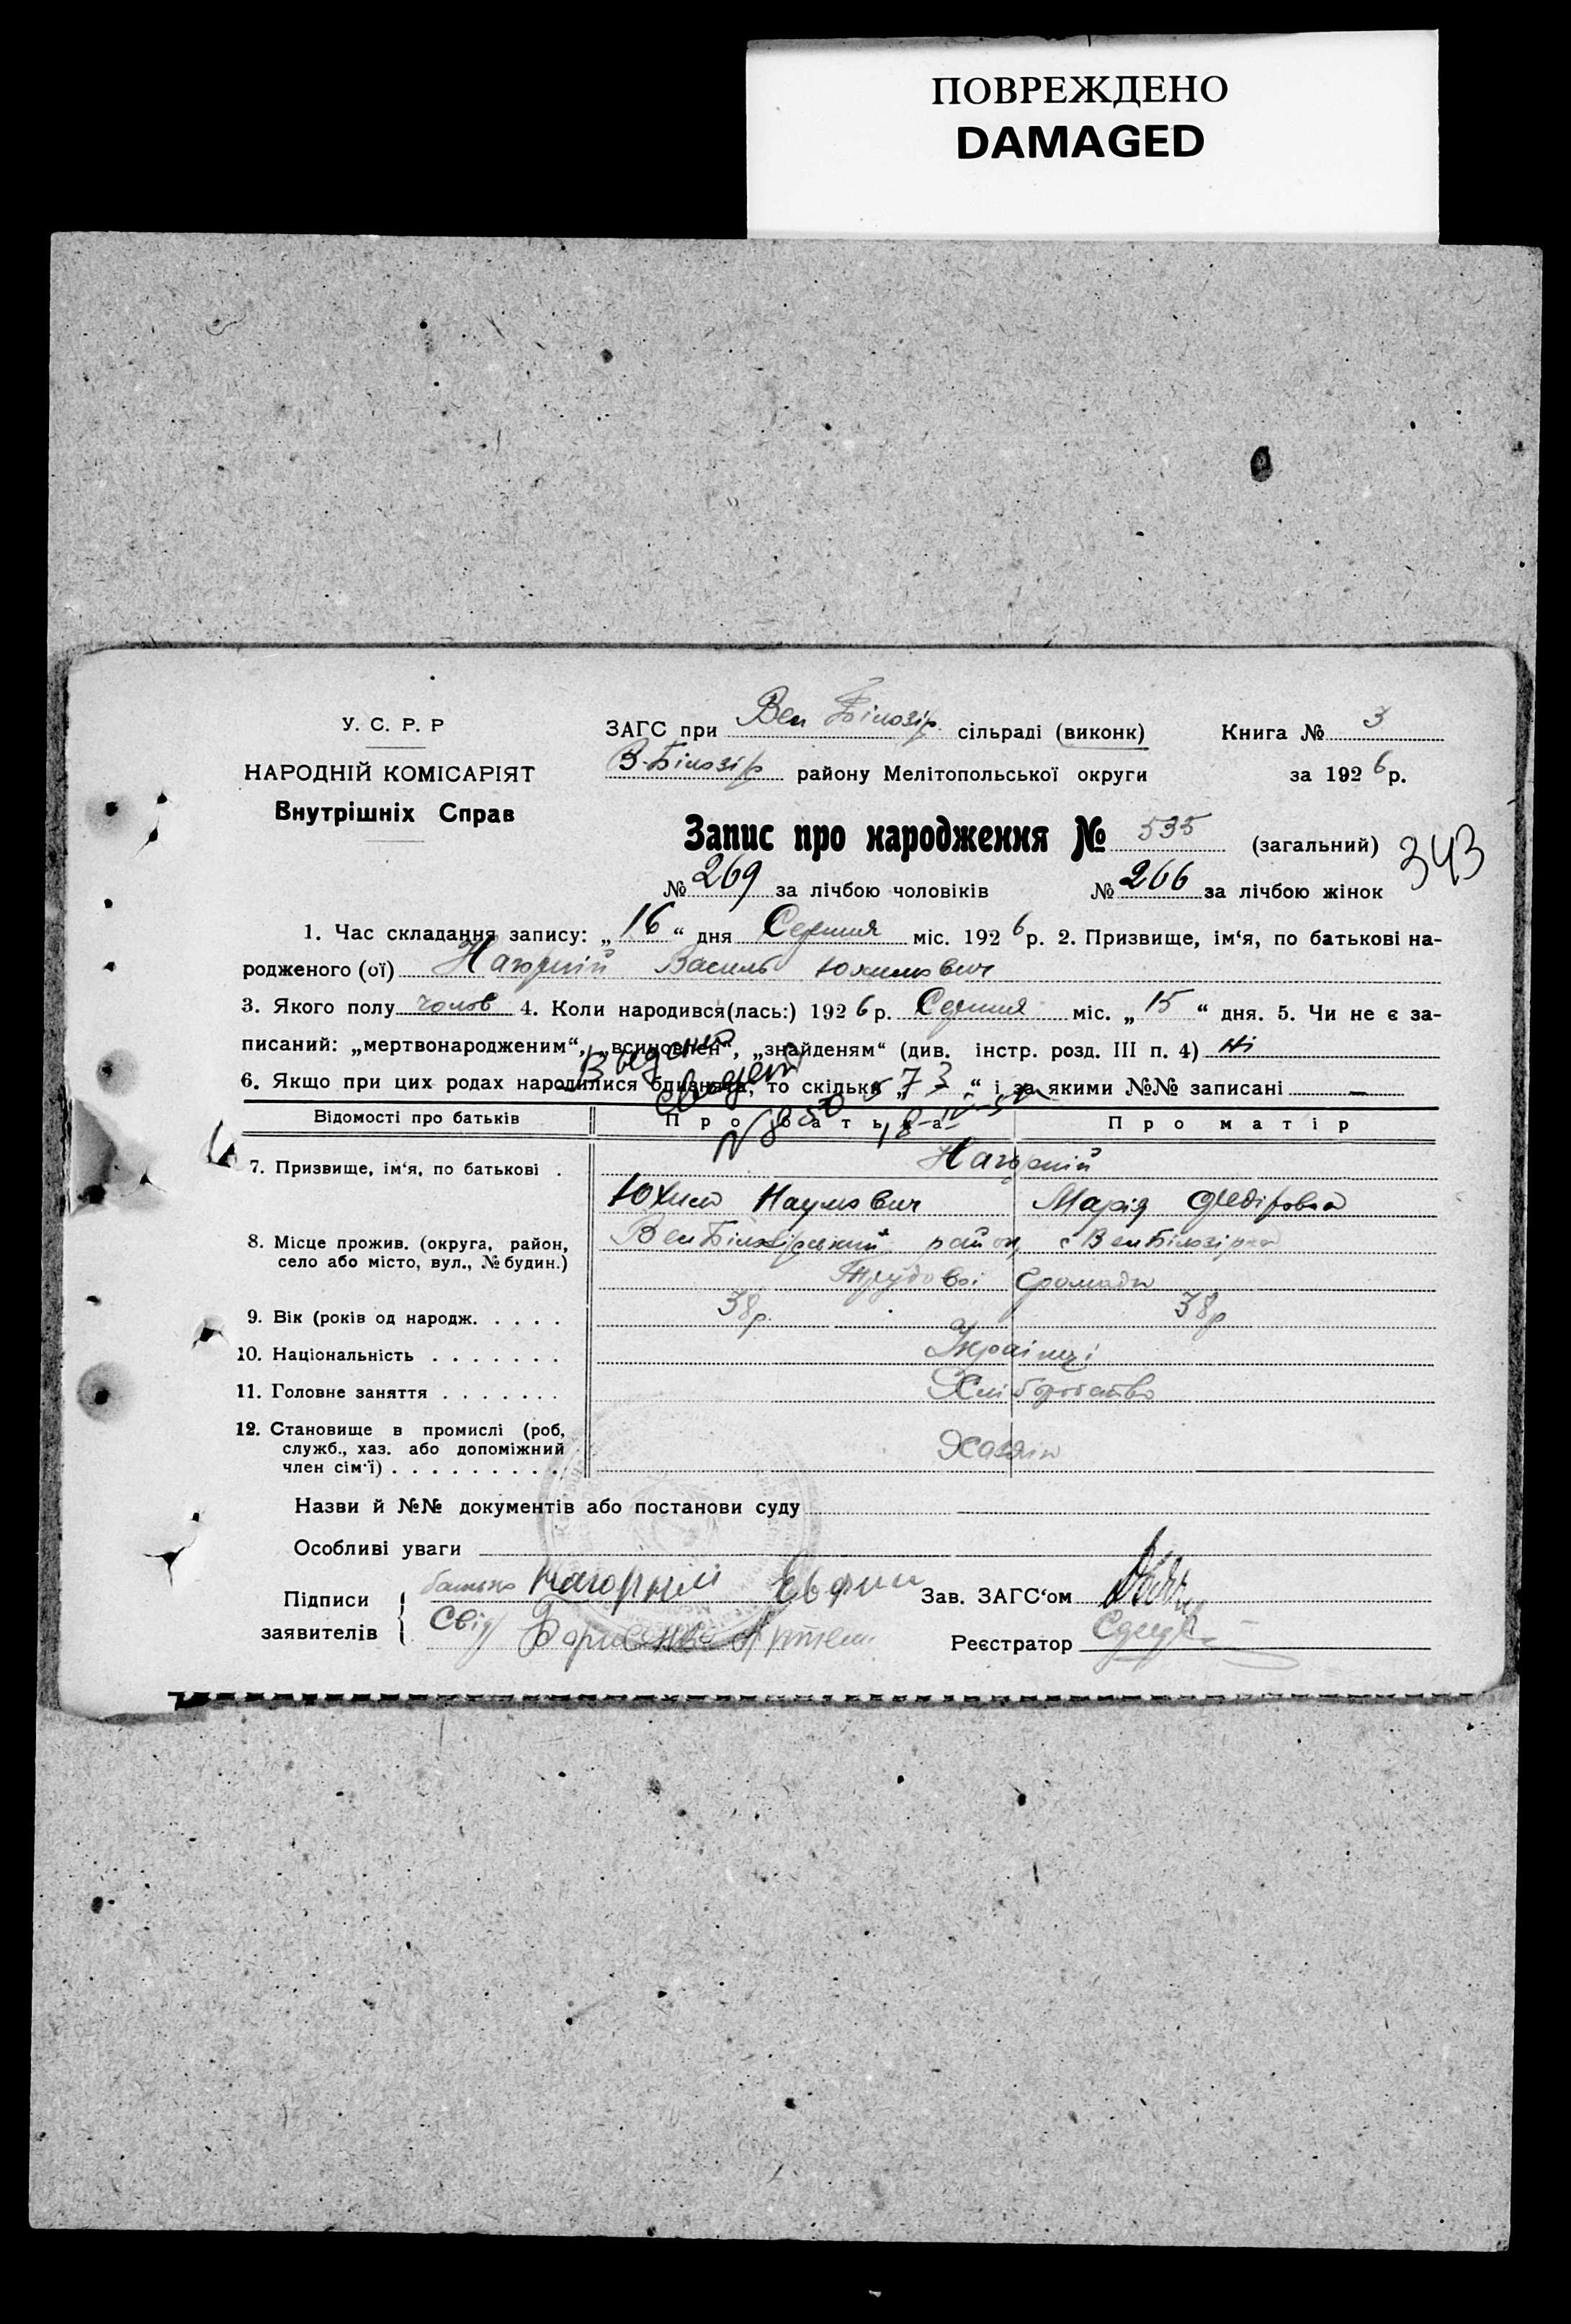 ПОВРЕЖДЕНО
DAMAGED
У. С. Р. Р
НАРОДНІЙ КОМІСАРІЯТ
Внутрішніх Справ
ЗАГС при Вел Білозір сільраді (виконк)
Книга № 3
В-Білозір району Мелітопольської округи
за 1926р.
Запис про народження № 535 (загальний)
343
№ 269 за лічбою чоловіків № 266 за лічбою жінок
1. Час складання запису: „16“ дня Серпня міс. 1926р. 2. Призвище, ім‘я, по батькові на-
родженого (ої) Нагорній Василь Юхимович
3. Якого полу чолов 4. Коли народився(лась:) 1926р. Серпня міс. „15“ дня. 5. Чи не є за-
писаний: „мертвонародженим“, „всиновлен“, „знайденям“ (див. інстр. розд. III п. 4) Ні
6. Якщо при цих родах народилися близнята, то скільки „ “ і за якими №№ записані —
Відомості про батьків
Про батька
Про матір
7. Призвище, ім‘я, по батькові .
Нагорній
Юхим Наумович
Марія Федіровна
8. Місце прожив. (округа, район,
село або місто, вул., № будин.)
ВелБілозірський район, с ВелБілозірка
Трудової Громади
9. Вік (років од народж. . . . .
38р.
38р
10. Національність . . . . . . .
Українці
11. Головне заняття . . . . . . .
Хліборобство
12. Становище в промислі (роб,
служб., хаз. або допоміжний
член сім‘ї) . . . . . . . . .
Хазяїн
Назви й №№ документів або постанови суду
Особливі уваги
Підписи
заявителів
батько Нагорний Евфим
Свід Борисенко Артем
Зав. ЗАГС‘ом
Реєстратор